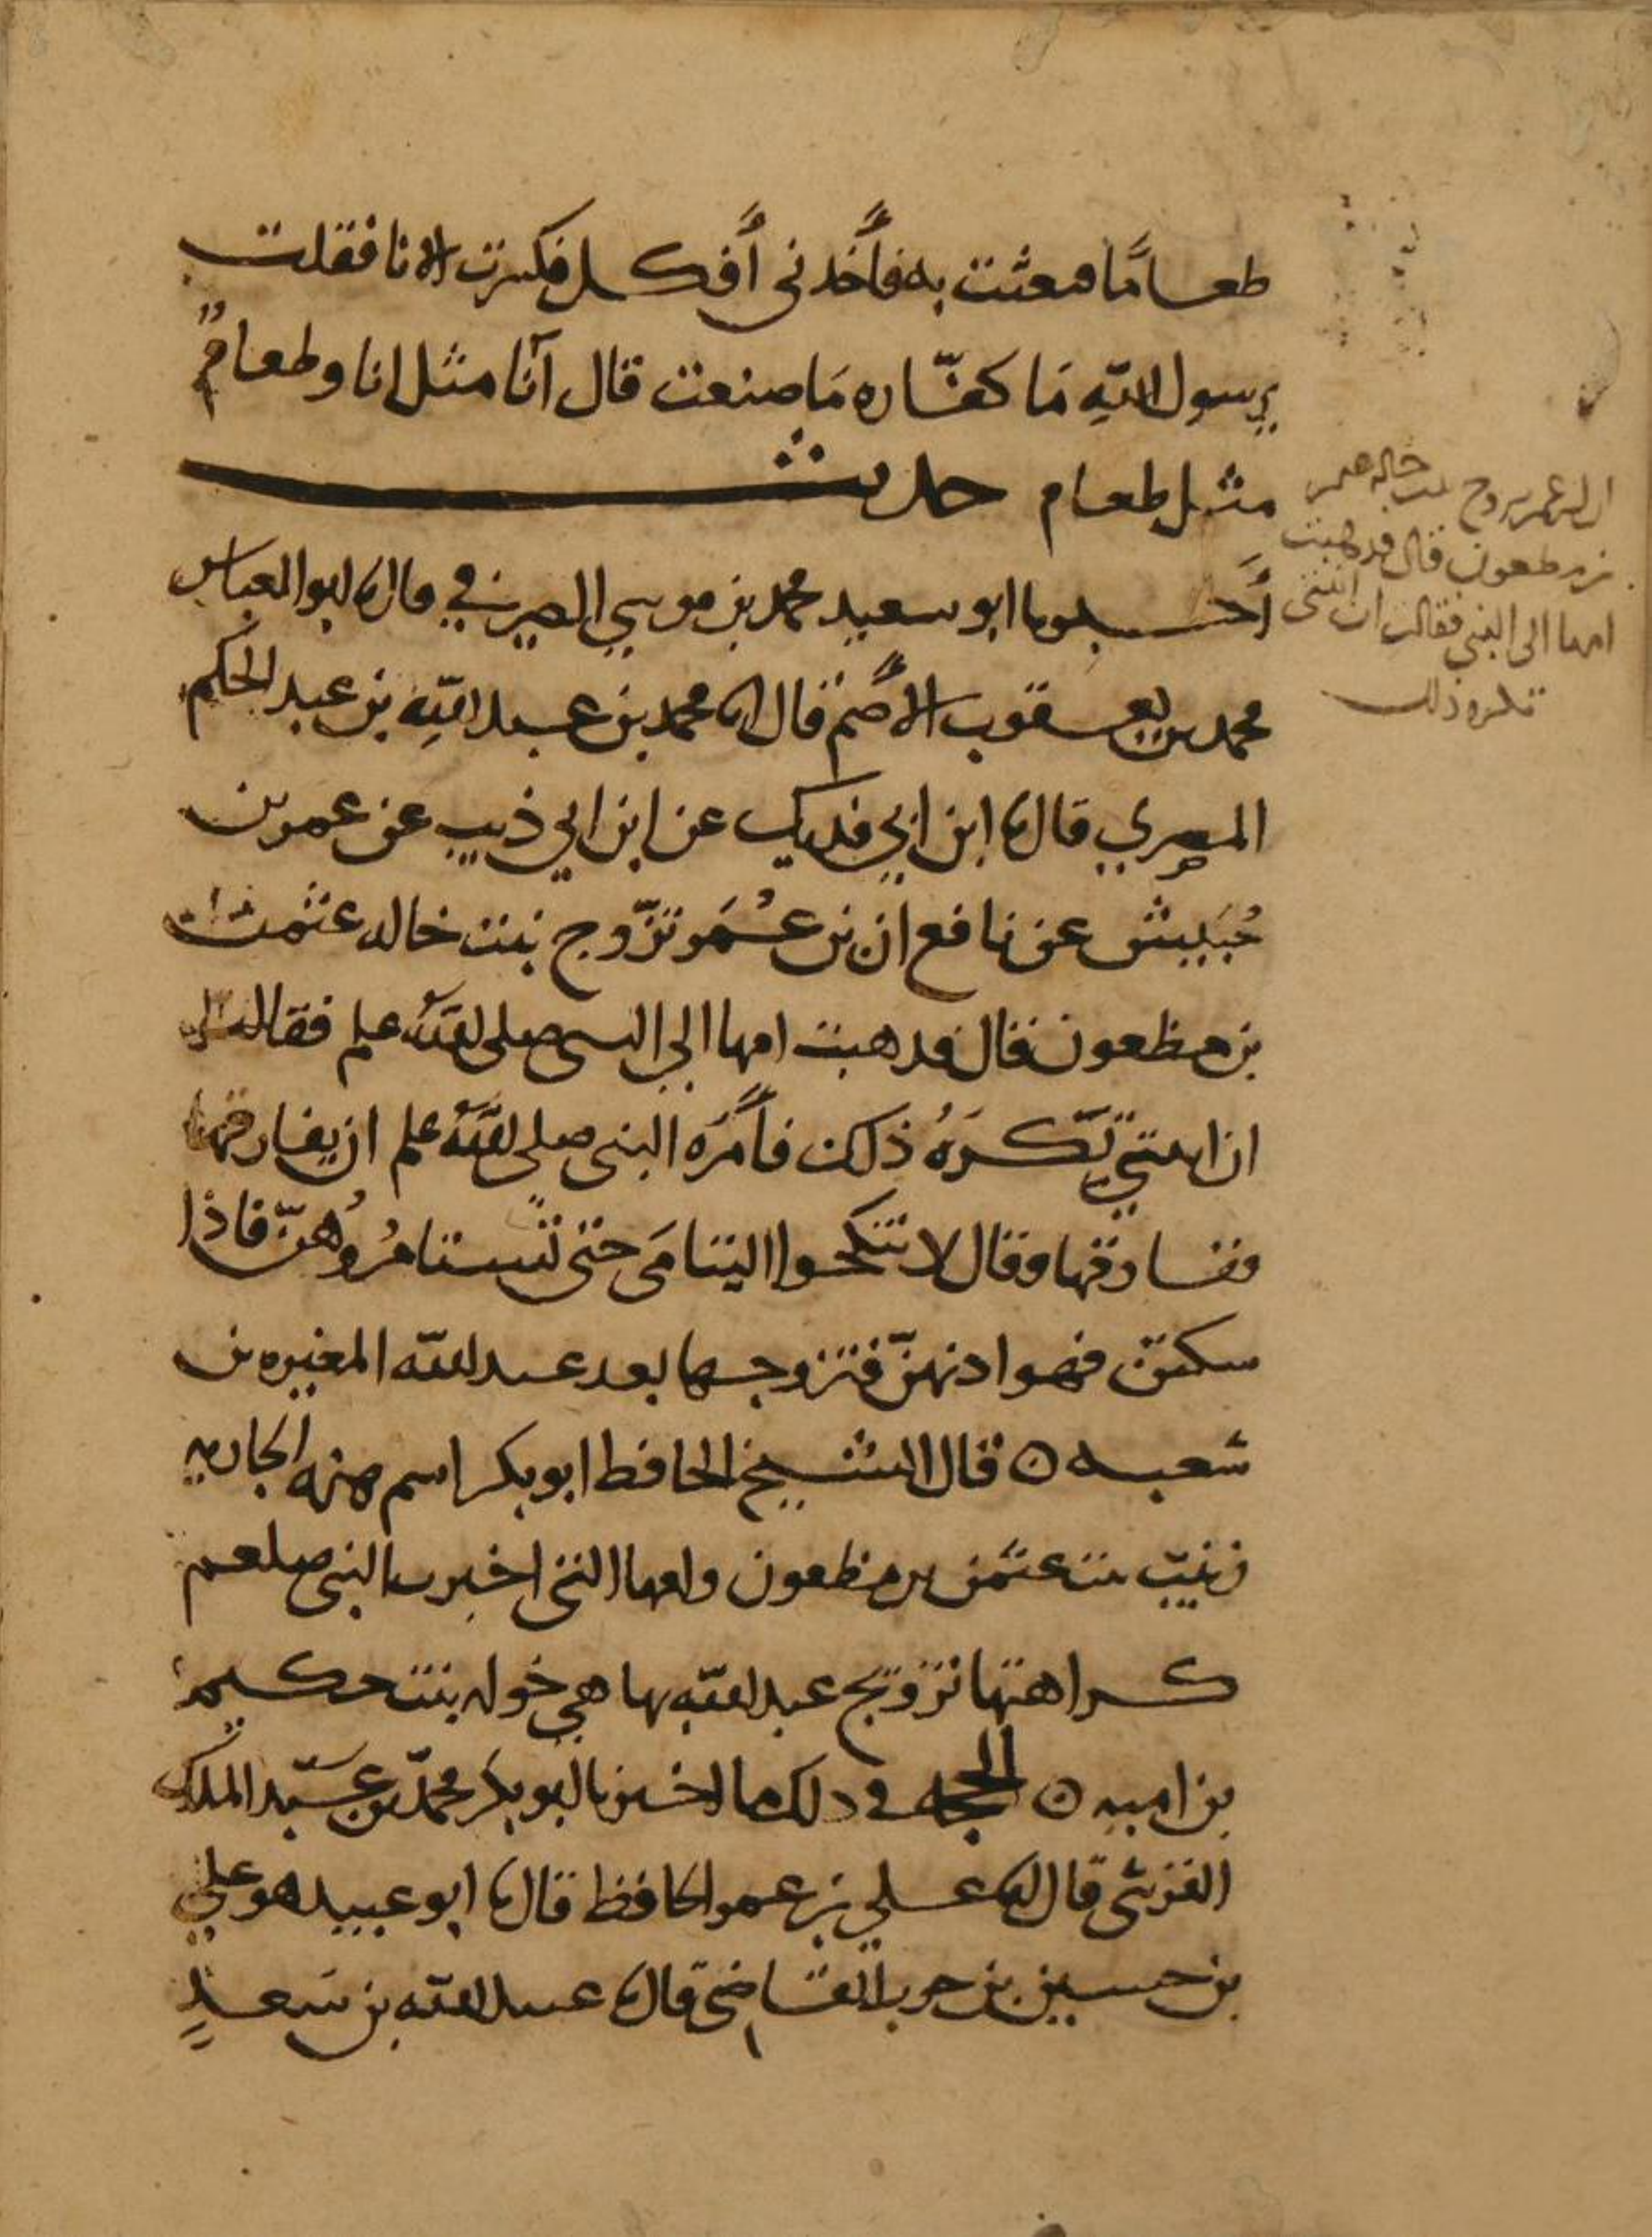 طعامًا فبعثت به فأخذني أفكل فكسرت الانا فقلت
يرسول الله مَا كفّاره مَا صنعت قال آنا مثل انا وطعامٌ
مثل طعام حديث
أخبرنا ابو سعيد محمد بن موسي الصيرفي قال انا ابو العباس
محمد بن يعقوب الأصم قال انا محمد بن عبد الله بن عبد الحكم
المصري قال انا ابن ابي فديك عن ابن ابي ذيب عن عمر بن
حُسَيش عن نافع ان بن عُمَر تزّوج بنت خاله عثمن
بن مظعون قال فذهبت امها الي النبي صلى الله علم فقالت
ان ابنتي تَكرَهُ ذلك فأمَرَه النبي صلى اللهُ علم ان يفارقها
ففارقها وقال لا تنكحوا اليتامَى حتى تستامرُوهُنّ فاذا
سكتن فهو اذنهنّ فتزوجها بعد عبد الله المغيره بن
شعبه ٥ قال الشيخ الحافظ ابو بكر اسم هذه الجاريه
زينب بنت عثمن بن مظعون وامها التي اخبرت النبي صلعم
كراهتها تزويج عبد الله بها هي خوله بنت حكيم
بن اميه ٥ الحجه في ذلك ما اخبرنا ابو بكر محمّد بن عبد الملك
القرشي قال انا علي بن عمر الحافظ قال انا ابو عبيد هو علي
بن حسين بن حرب القاضي قال انا عبيد الله بن سَعدٍ
ان بن عمر تزوج بنت خاله عثمن
بن مظعون قال فذهبت
امها الى النبي فقالت ان ابنتي
تكره ذلك